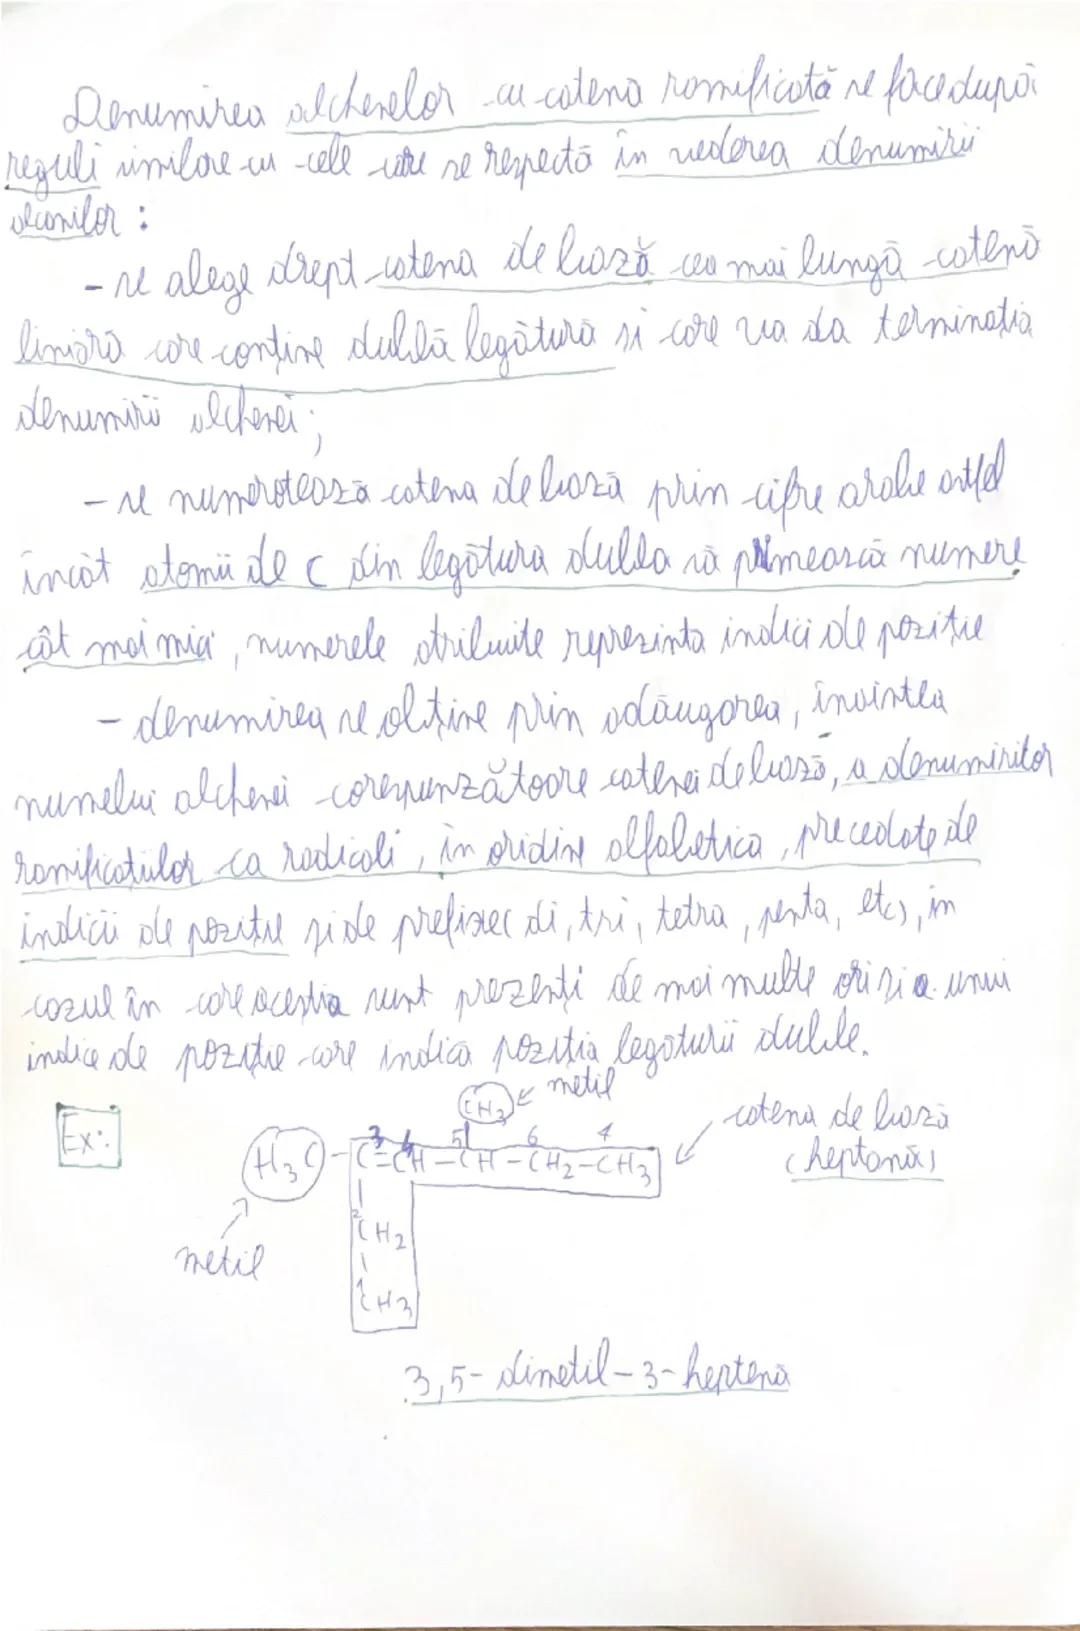 Denumirea alchenelor cu catena ramificată se face după
reguli similare cu cele care se respectă în vederea denumirii
alcanilor :
- se alege drept catena de bază cea mai lungă catenă
liniară care conține dublă legătură si care va da terminația
denumirii alchenei ;
- se numerotează catena de bază prin cifre arabe astfel
încât atomii de C din legătura dubla să primească numere
cât mai mici , numerele atribuite reprezinta indici de poziție
- denumirea se obține prin adăugarea, înaintea
numelui alchenei corespunzătoare catenei de bază, a denumirilor
ramificatiilor ca radicali , în oridine alfabetica , precedate de
indicii de poziție și de prefixe( di, tri, tetra, penta, etc), in
cazul în care acestia sunt prezenți de mai multe ori si a unui
indice de poziție care indica poziția legăturii duble.
Ex:
CH3 metil
catena de bază
(heptană)
3 4 5 6 7
H3C - C = CH - CH - CH2 - CH3
2
CH2
metil
1
CH3
3,5- dimetil - 3- heptenă